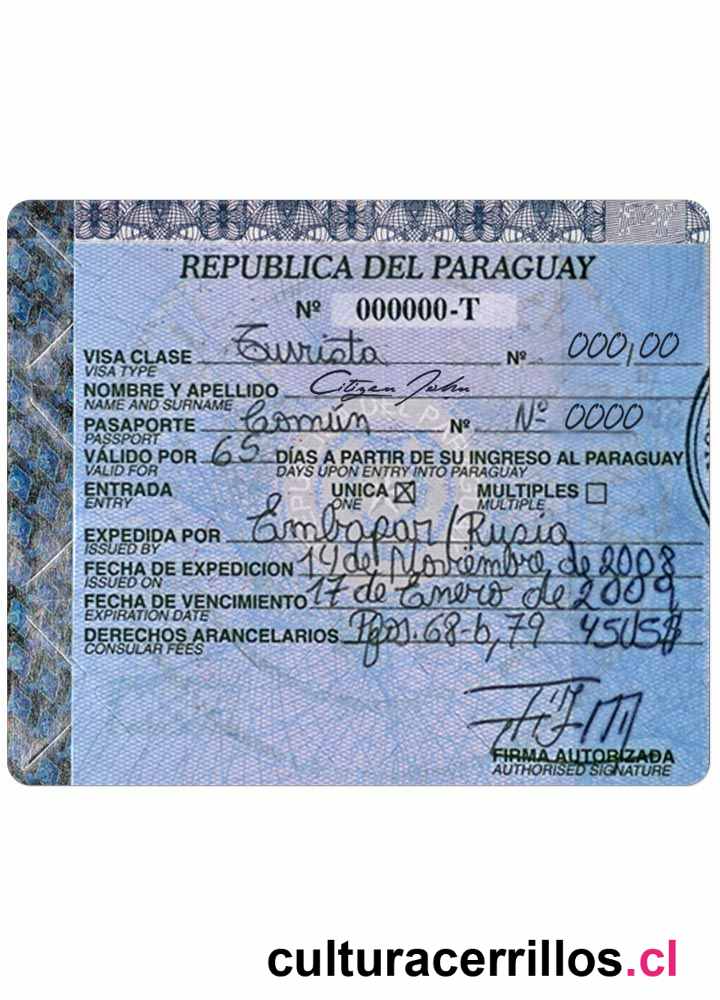 REPUBLICA DEL PARAGUAY
Nº 000000-T
VISA CLASE Turista Nº 000,00
VISA TYPE
NOMBRE Y APELLIDO Citizen John
NAME AND SURNAME
PASAPORTE Común Nº Nº 0000
PASSPORT
VÁLIDO POR 65 DÍAS A PARTIR DE SU INGRESO AL PARAGUAY
VALID FOR DAYS UPON ENTRY INTO PARAGUAY
ENTRADA UNICA ☒ MULTIPLES ☐
ENTRY ONE MULTIPLE
EXPEDIDA POR Embapar/Rusia
ISSUED BY
FECHA DE EXPEDICION 14 de Noviembre de 2008
ISSUED ON
FECHA DE VENCIMIENTO 17 de Enero de 2009
EXPIRATION DATE
DERECHOS ARANCELARIOS Pgos. 68-b, 79 45US$
CONSULAR FEES
FIRMA AUTORIZADA
AUTHORISED SIGNATURE
culturacerrillos.cl